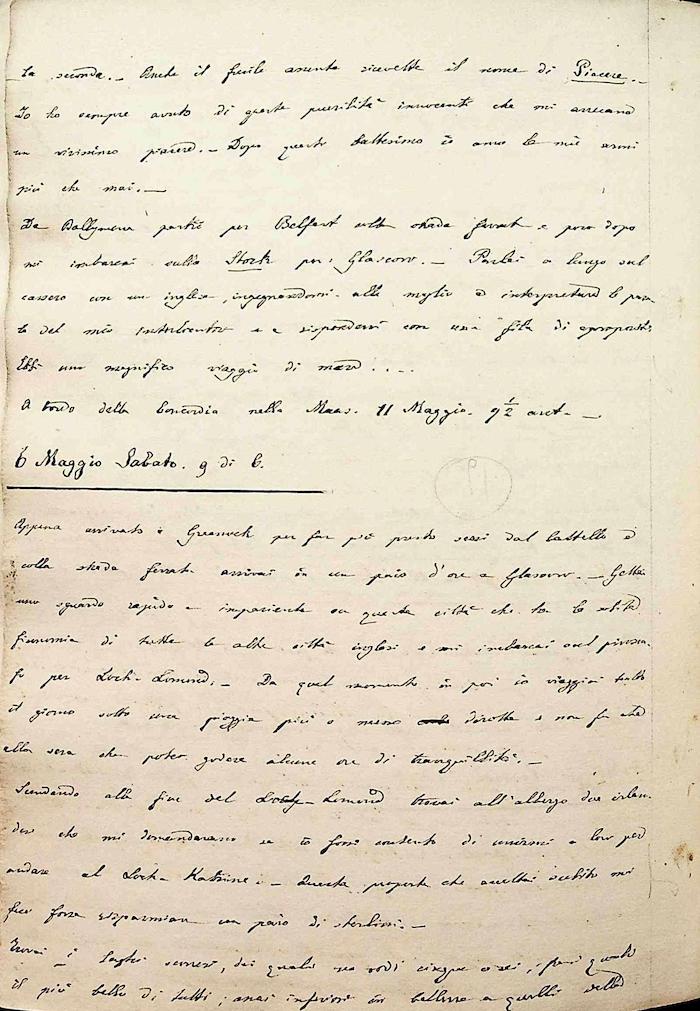 la seconda. — Anche il fucile assunto ricevette il nome di Piacere. —
Io ho sempre avuto di queste puerilità innocenti che mi arrecano
un vivissimo piacere. — Dopo questo battesimo io amo le mie armi
più che mai. —
Da Ballymena partii per Belfast colla strada ferrata e poco dopo
mi imbarcai sulla Stork per Glascow. — Parlai a lungo sul
cassero con un inglese, ingegnandomi alla meglio a interpretare le paro-
le del mio interlocutore e a rispondervi con una fila di spropositi.
Ebbi un magnifico viaggio di mare . . . .
A bordo della Concordia nella Maas. 11 Maggio. 9 1/2 ant. —
6 Maggio Sabato. 9 di 6.
Appena arrivato a Greenock per far più presto scesi dal battello e
colla strada ferrata arrivai in un paio d'ore a Glascow. — Gettai
uno sguardo rapido e impaziente su questa città che ha la solita
fisonomia di tutte le altre città inglesi e mi imbarcai sul pirosca-
fo per Loch-Lomond. — Da quel momento in poi io viaggiai tutto
il giorno sotto una pioggia più o meno dirotta e non fu che
alla sera che potei godere alcune ore di tranquillità. —
Scendendo alla fine del Loch-Lomond trovai all'albergo due irlan-
desi che mi domandarono se io fossi contento di unirmi a loro per
andare al Loch-Katrine. — Questa proposta che accettai subito mi
fece forse risparmiare un paio di sterline. —
Trovai i laghi scozzesi, dei quali ne vidi cinque o sei, fra i quali
il più bello di tutti, assai inferiori in bellezza a quelli della